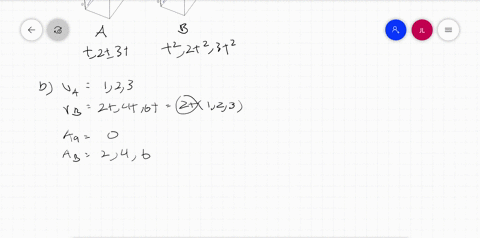 A B
t, 2t, 3t t², 2t², 3t²
b) V_A = 1, 2, 3
V_B = 2t, 4t, 6t = 2t(1, 2, 3)
A_A = 0
A_B = 2, 4, 6